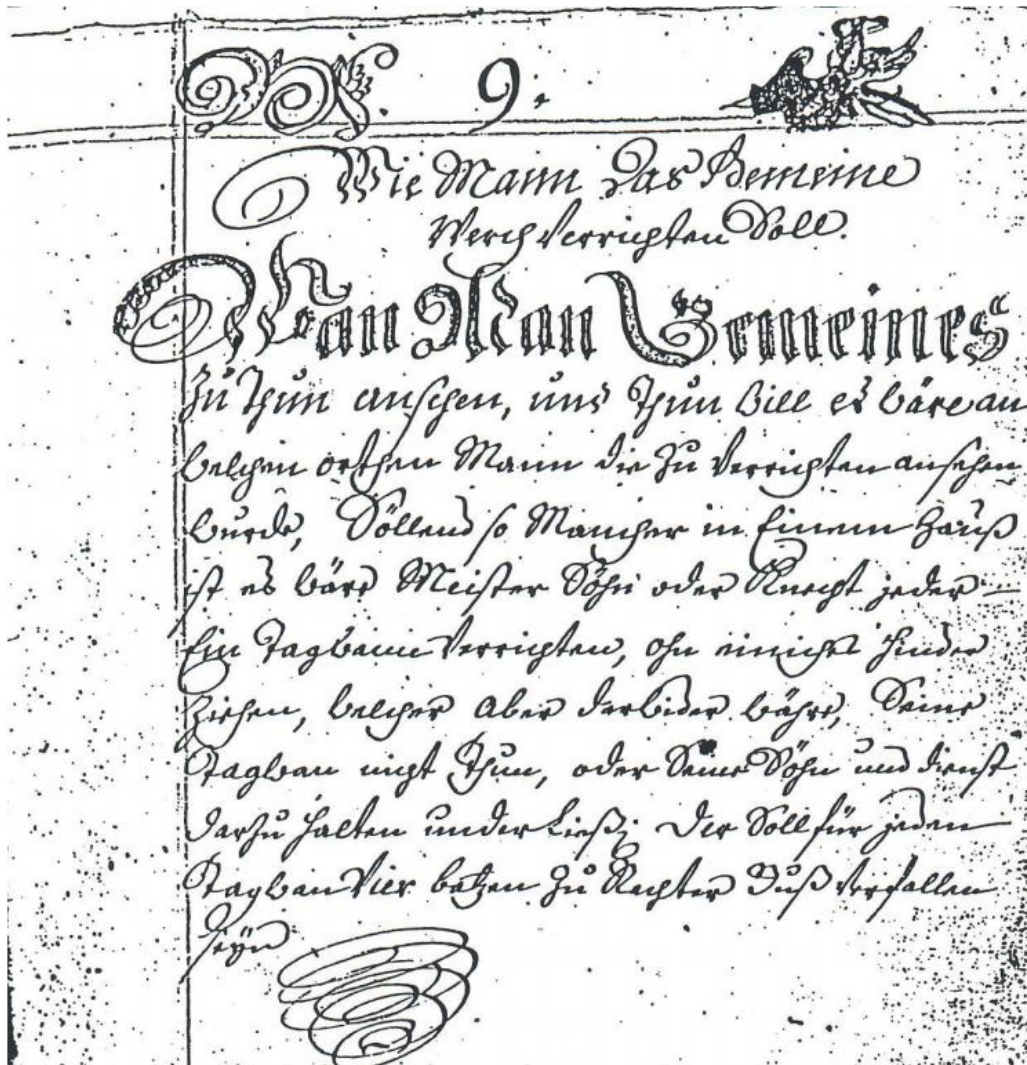 9.
Wie Mann Das Gemeine
Werch Verrichten Soll.
Wan Man Gemeines
Zu Thun ansehen, und Thun Will es wäre an
welchen orthen Mann die Zu Verrichten ansehen
wurde, Söllend so Mancher in Einem Hauß
ist es wäre Meister Söhn oder Knecht jeder
Ein Tagwann Verrichten, ohn einiches hinder
Ziehen, welcher Aber darwider währe, Seine
Tagwan nicht Thun, oder Seine Söhn und dienst
darzu halten underließ; Der Soll für jeden
Tagwan Vier batzen Zu Rechter Buß Verfallen
seyn